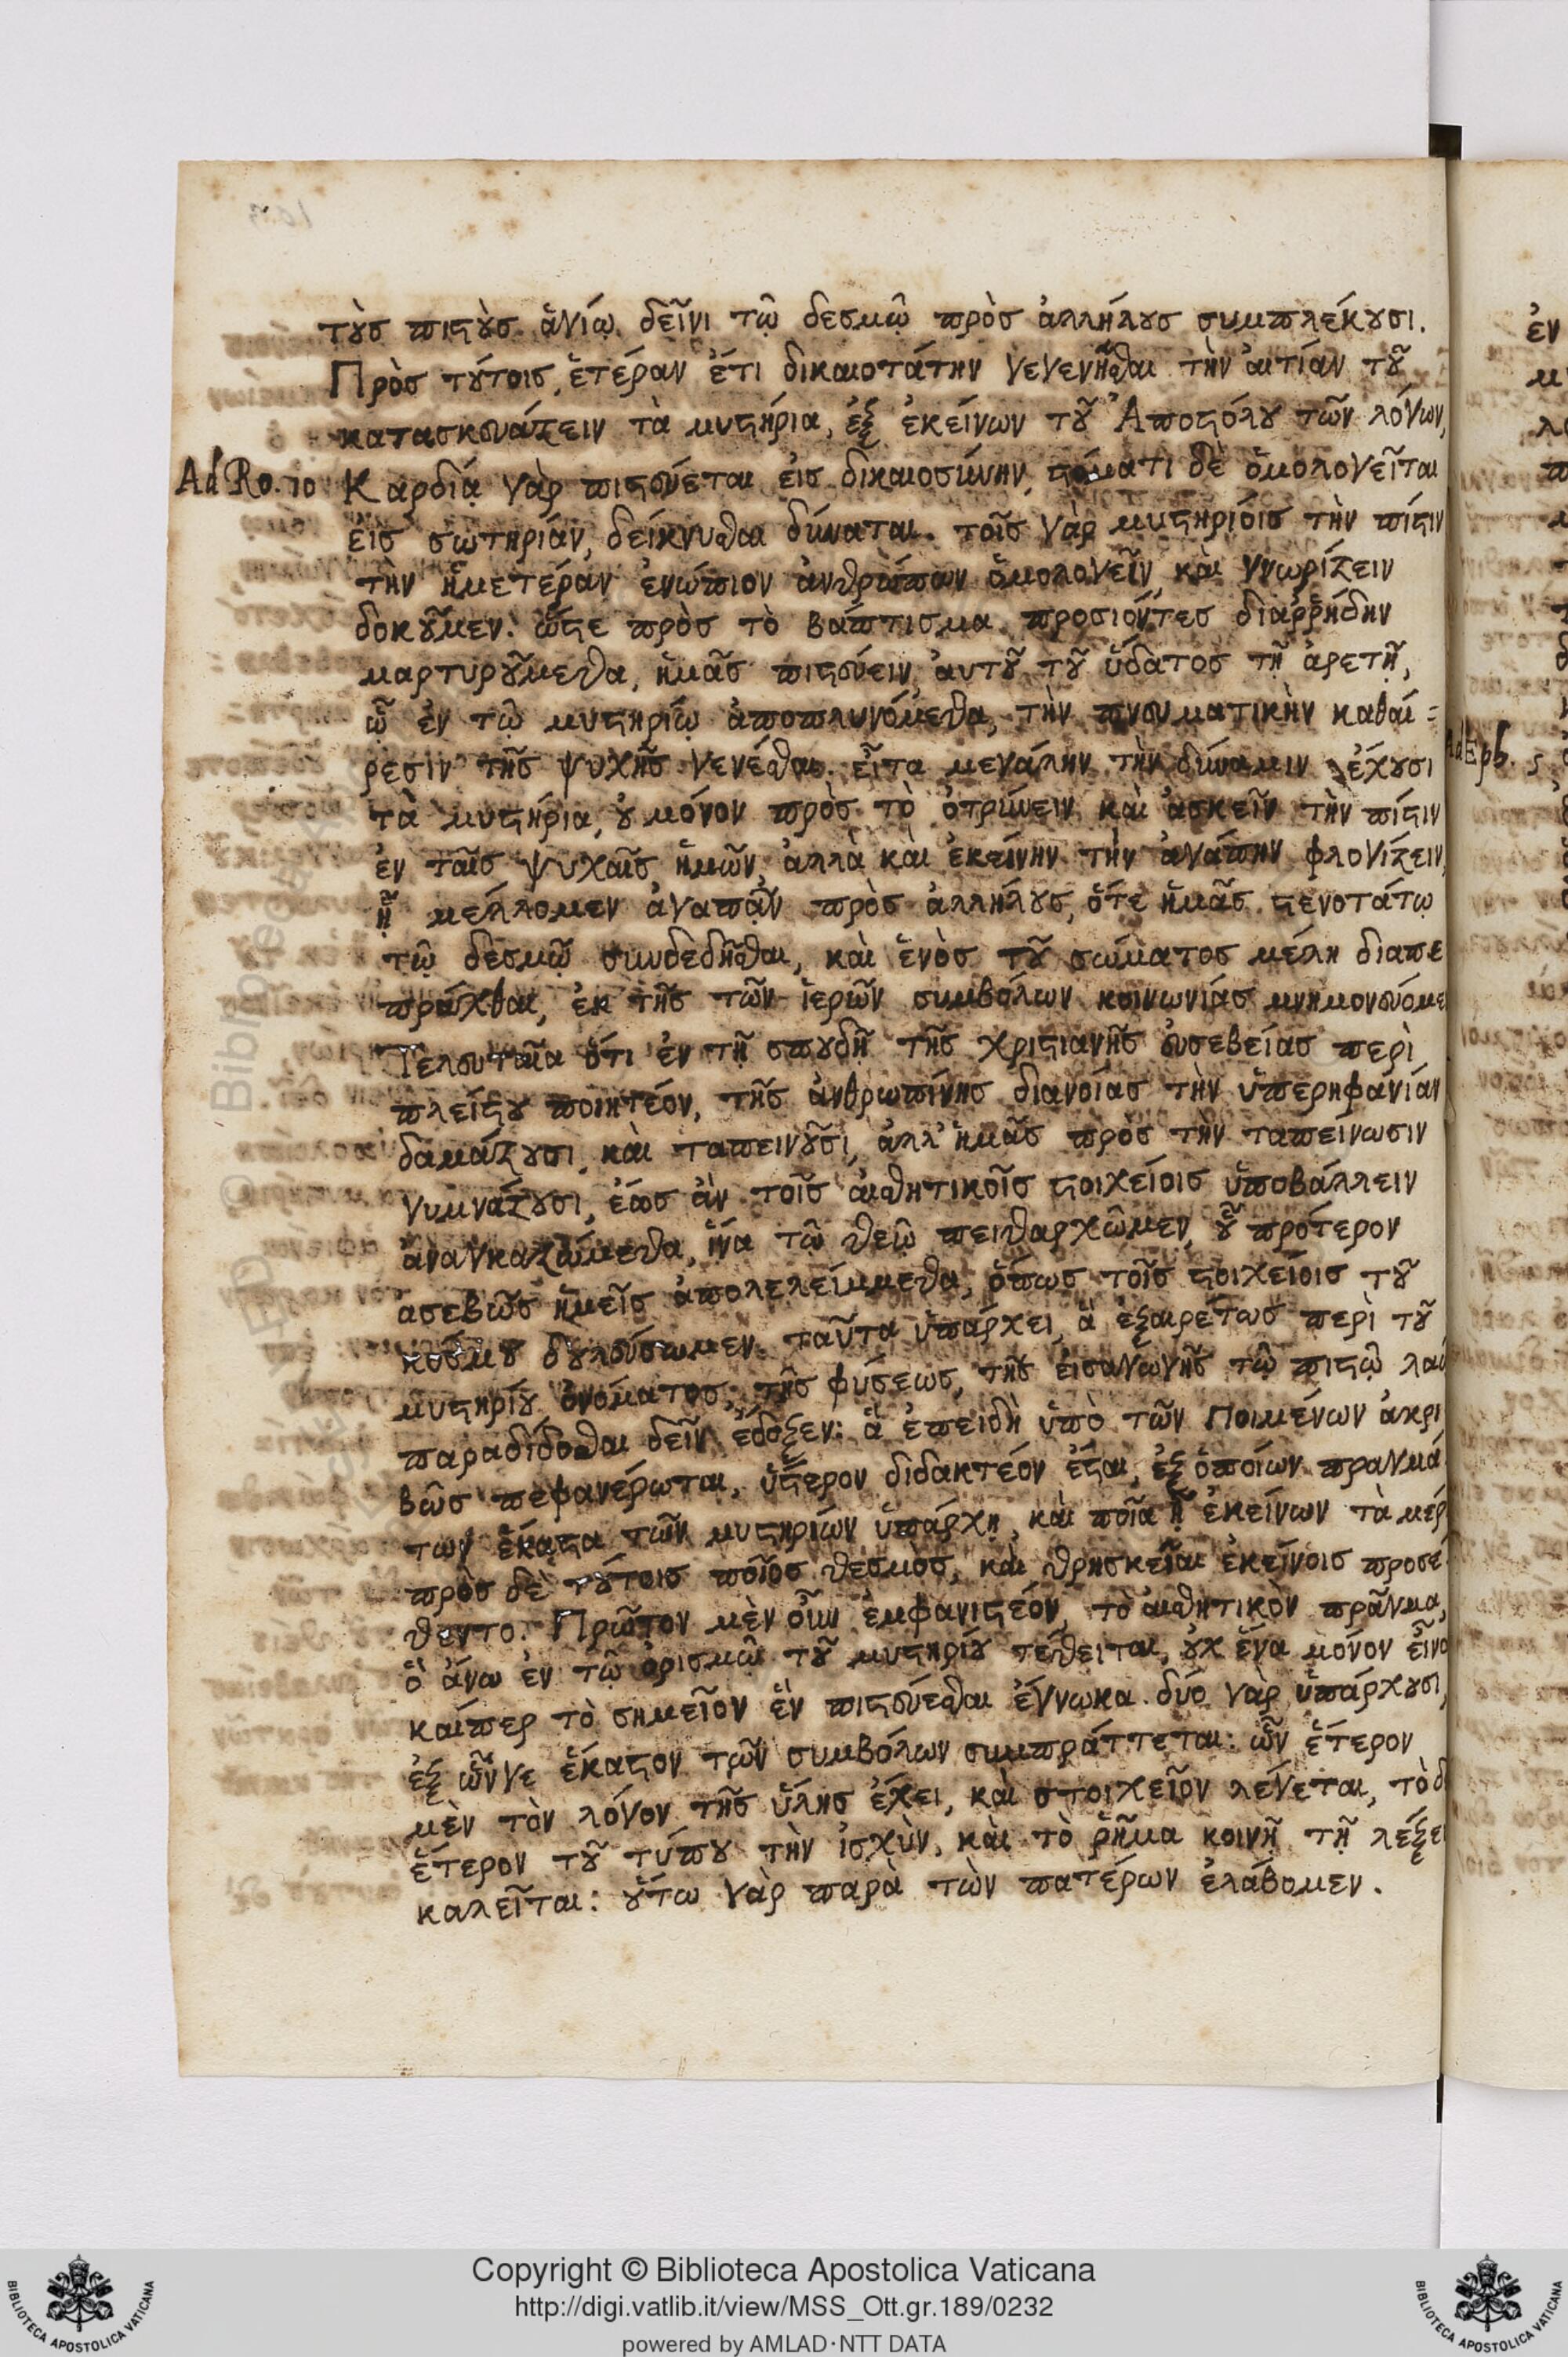 τοὺς πιστοὺς ἁγίῳ δεῖνι τῷ δεσμῷ πρὸς ἀλλήλους συμπλέκουσι.
Πρὸς τούτοις, ἑτέραν ἔτι δικαιοτάτην γεγενῆσθαι τὴν αἰτίαν τοῦ
κατασκευάζειν τὰ μυστήρια, ἐξ ἐκείνων τοῦ Ἀποστόλου τῶν λόγων,
Ad Ro. 10 Καρδίᾳ γὰρ πιστεύεται εἰς δικαιοσύνην, στόματι δὲ ὁμολογεῖται
εἰς σωτηρίαν, δείκνυσθαι δύναται. τοῖς γὰρ μυστηρίοις τὴν πίστιν
τὴν ἡμετέραν ἐνώπιον ἀνθρώπων ὁμολογεῖν, καὶ γνωρίζειν
δοκοῦμεν. ὥστε πρὸς τὸ βάπτισμα προσιόντες διαῤῥήδην
μαρτυρούμεθα, ἡμᾶς πιστεύειν, αὐτοῦ τοῦ ὕδατος τῇ ἀρετῇ,
ᾧ ἐν τῷ μυστηρίῳ ἀποπλυνόμεθα, τὴν πνευματικὴν καθαί=
ρεσιν τῆς ψυχῆς γενέσθαι. εἶτα μεγάλην τὴν δύναμιν ἔχουσι
τὰ μυστήρια, οὐ μόνον πρὸς τὸ ὀτρύνειν καὶ ἀσκεῖν τὴν πίστιν
ἐν ταῖς ψυχαῖς ἡμῶν, ἀλλὰ καὶ ἐκείνην τὴν ἀγάπην φλογίζειν,
ᾗ μέλλομεν ἀγαπᾷν πρὸς ἀλλήλους, ὅτε ἡμᾶς στενοτάτῳ
τῷ δεσμῷ συνδεδῆσθαι, καὶ ἑνὸς τοῦ σώματος μέλη διαπε
πράχθαι, ἐκ τῆς τῶν ἱερῶν συμβόλων κοινωνίας μνημονευόμε
Τελευταῖα ὅτι ἐν τῇ σπουδῇ τῆς χριστιανῆς εὐσεβείας περὶ
πλείστου ποιητέον, τῆς ἀνθρωπίνης διανοίας τὴν ὑπερηφανίαν
δαμάζουσι, καὶ ταπεινοῦσι, ἀλλ' ἡμᾶς πρὸς τὴν ταπείνωσιν
γυμνάζουσι, ἕως ἂν τοῖς αἰσθητικοῖς στοιχείοις ὑποβάλλειν
ἀναγκαζώμεθα, ἵνα τῷ θεῷ πειθαρχῶμεν, οὗ πρότερον
ἀσεβῶς ἡμεῖς ἀπολελείμμεθα, ὅπως τοῖς στοιχείοις τοῦ
κόσμου δουλεύσωμεν. ταῦτα ὑπάρχει, ἃ ἐξαιρέτως περὶ τοῦ
μυστηρίου ὀνόματος, τῆς φύσεως, τῆς εἰσαγωγῆς τῷ πιστῷ λαῷ
παραδίδοσθαι δεῖν ἔδοξεν: ἃ ἐπειδὴ ὑπὸ τῶν Ποιμένων ἀκρι
βῶς πεφανέρωται, ὕστερον διδακτέον ἔσται, ἐξ ὁποίων πραγμά
των ἕκαστα τῶν μυστηρίων ὑπάρχῃ, καὶ ποῖα ᾖ ἐκείνων τὰ μέρ
πρὸς δὲ τούτοις ποῖος θεσμὸς, καὶ θρησκεῖαι ἐκείνοις προσέ
θεντο. Πρῶτον μὲν οὖν ἐμφανιστέον, τὸ αἰσθητικὸν πρᾶγμα,
ὃ ἄνω ἐν τῷ ὁρισμῷ τοῦ μυστηρίου τέθειται, οὐχ ἕνα μόνον εἶνα
καίπερ τὸ σημεῖον ἓν πιστεύεσθαι ἔγνωκα. δύο γὰρ ὑπάρχουσι,
ἐξ ὧνγε ἕκαστον τῶν συμβόλων συμπράττεται: ὧν ἕτερον
μὲν τὸν λόγον τῆς ὕλης ἔχει, καὶ στοιχεῖον λέγεται, τὸ δ
ἕτερον τοῦ τύπου τὴν ἰσχὺν, καὶ τὸ ῥῆμα κοινῇ τῇ λέξει
καλεῖται: οὕτω γὰρ παρὰ τῶν πατέρων ἐλάβομεν.
Ad Eph. 5
Copyright © Biblioteca Apostolica Vaticana
http://digi.vatlib.it/view/MSS_Ott.gr.189/0232
powered by AMLAD·NTT DATA
BIBLIOTECA APOSTOLICA VATICANA
BIBLIOTECA APOSTOLICA VATICANA